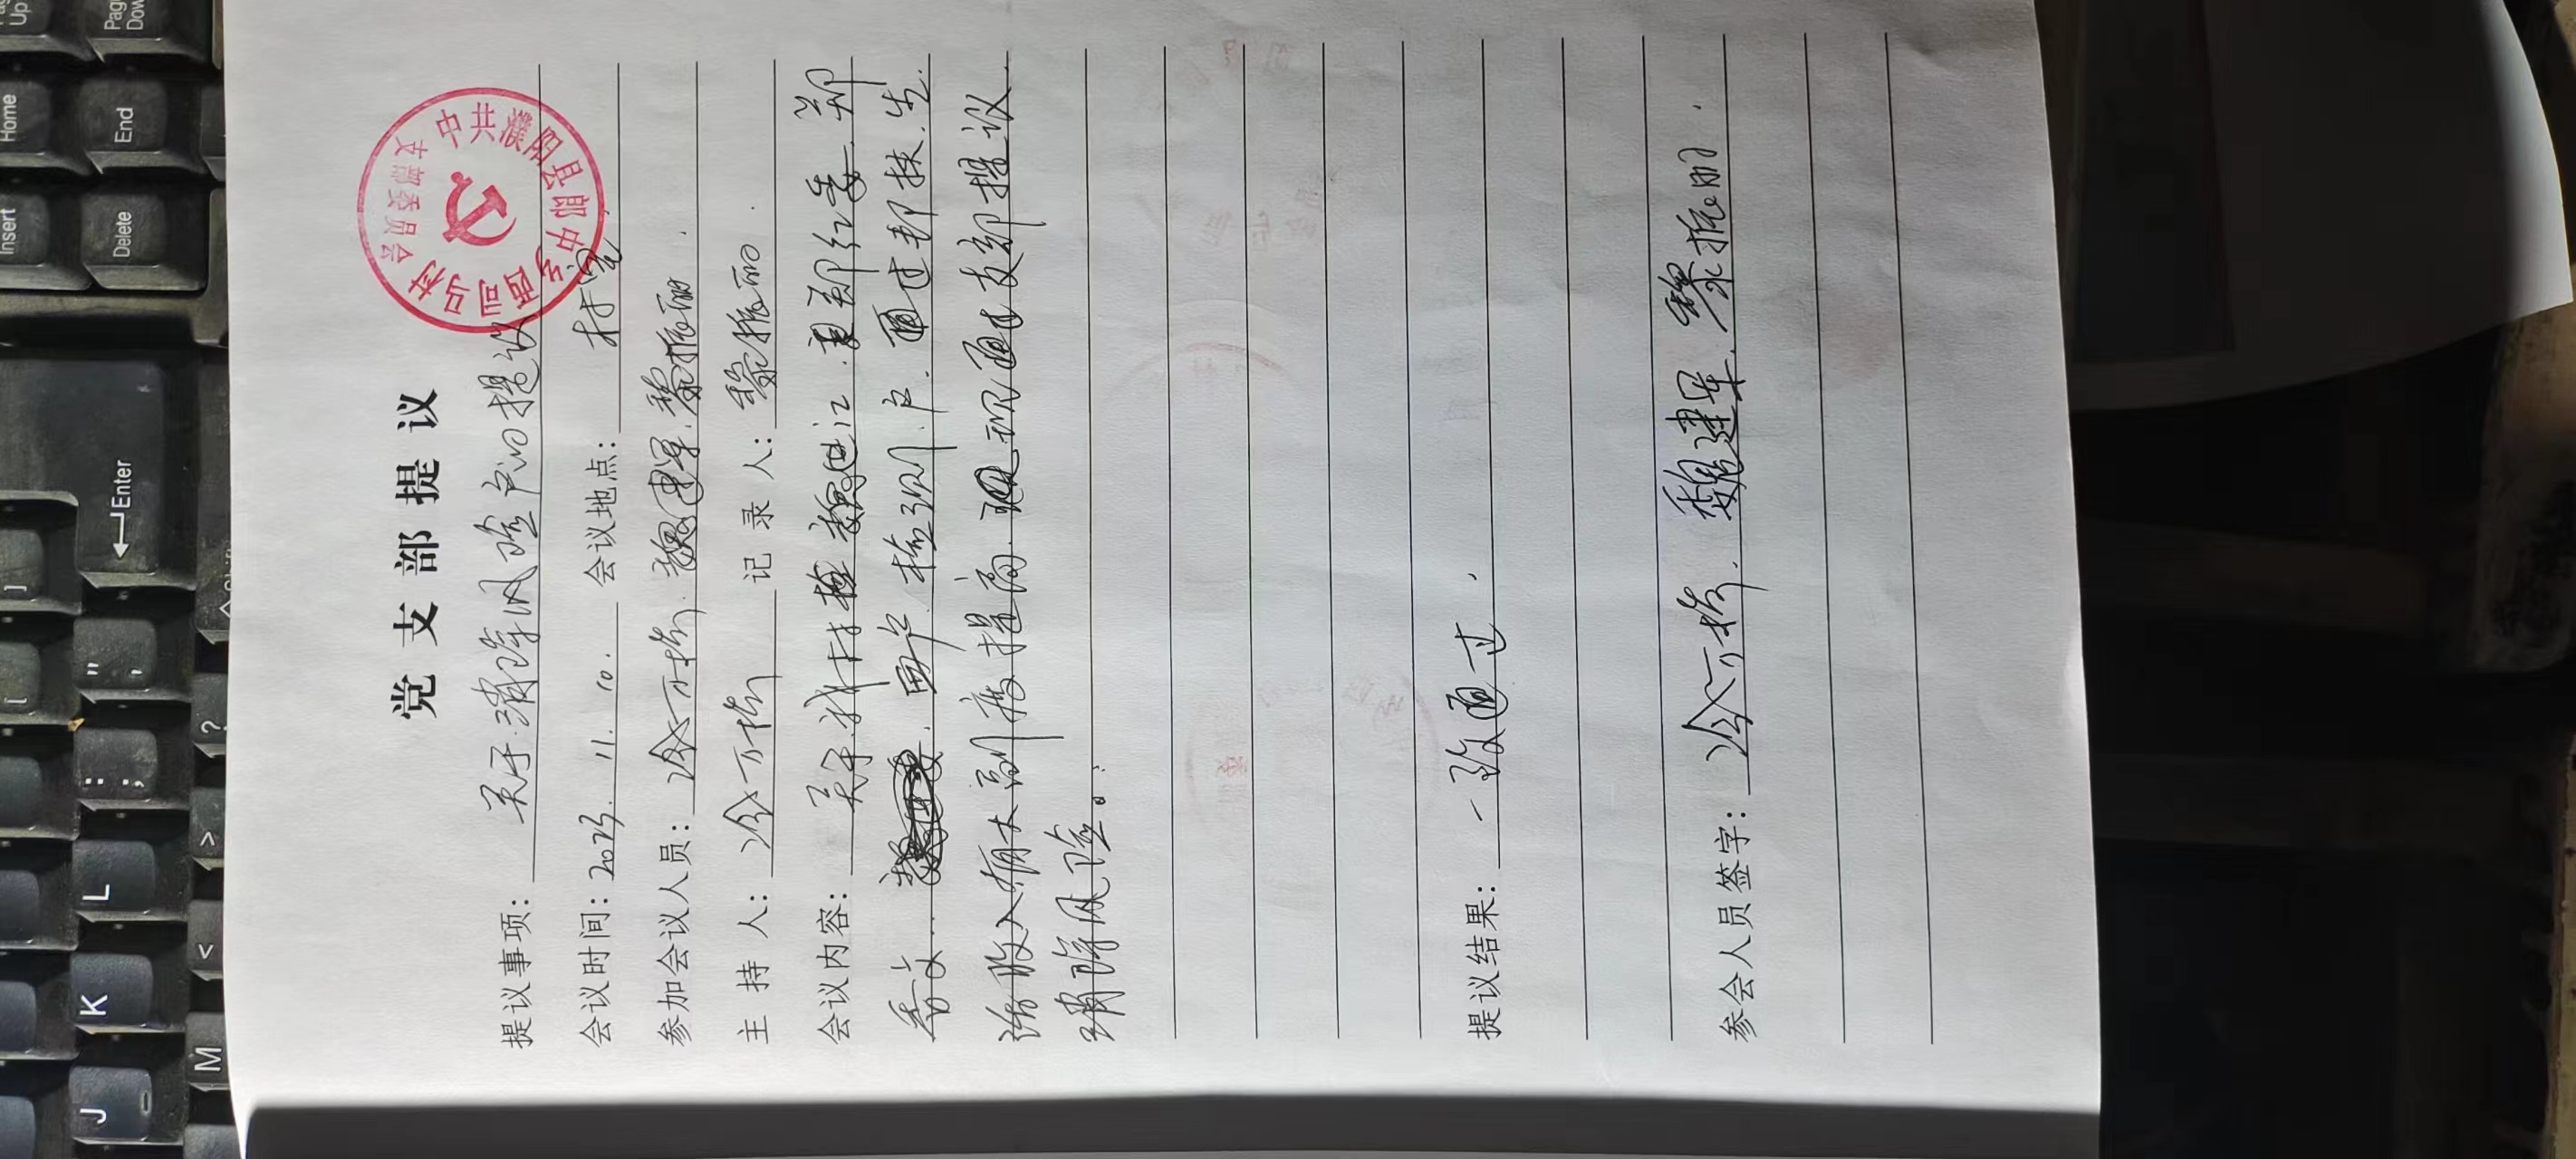 [ ]
Insert Home Pag Up
J K L : ; " ' Enter Delete End Pag Dow
M < > ? Shift
党支部提议
中共濮阳县郎中乡西司马村支部委员会
提议事项: 关于消除风险户的提议
会议时间: 2023. 11. 10. 会议地点: 村室.
参加会议人员: 冷万栋. 魏建军. 黎振丽.
主 持 人: 冷万栋 记 录 人: 黎振丽.
会议内容: 关于我村 魏进江. 郑红委. 郑
香文.. 两户. 检测户. 通过帮扶. 生.
活收入有大副度提高. 现通过支部提议.
消除风险。
提议结果: 一致通过.
参会人员签字: 冷万栋. 魏建军. 黎振丽.